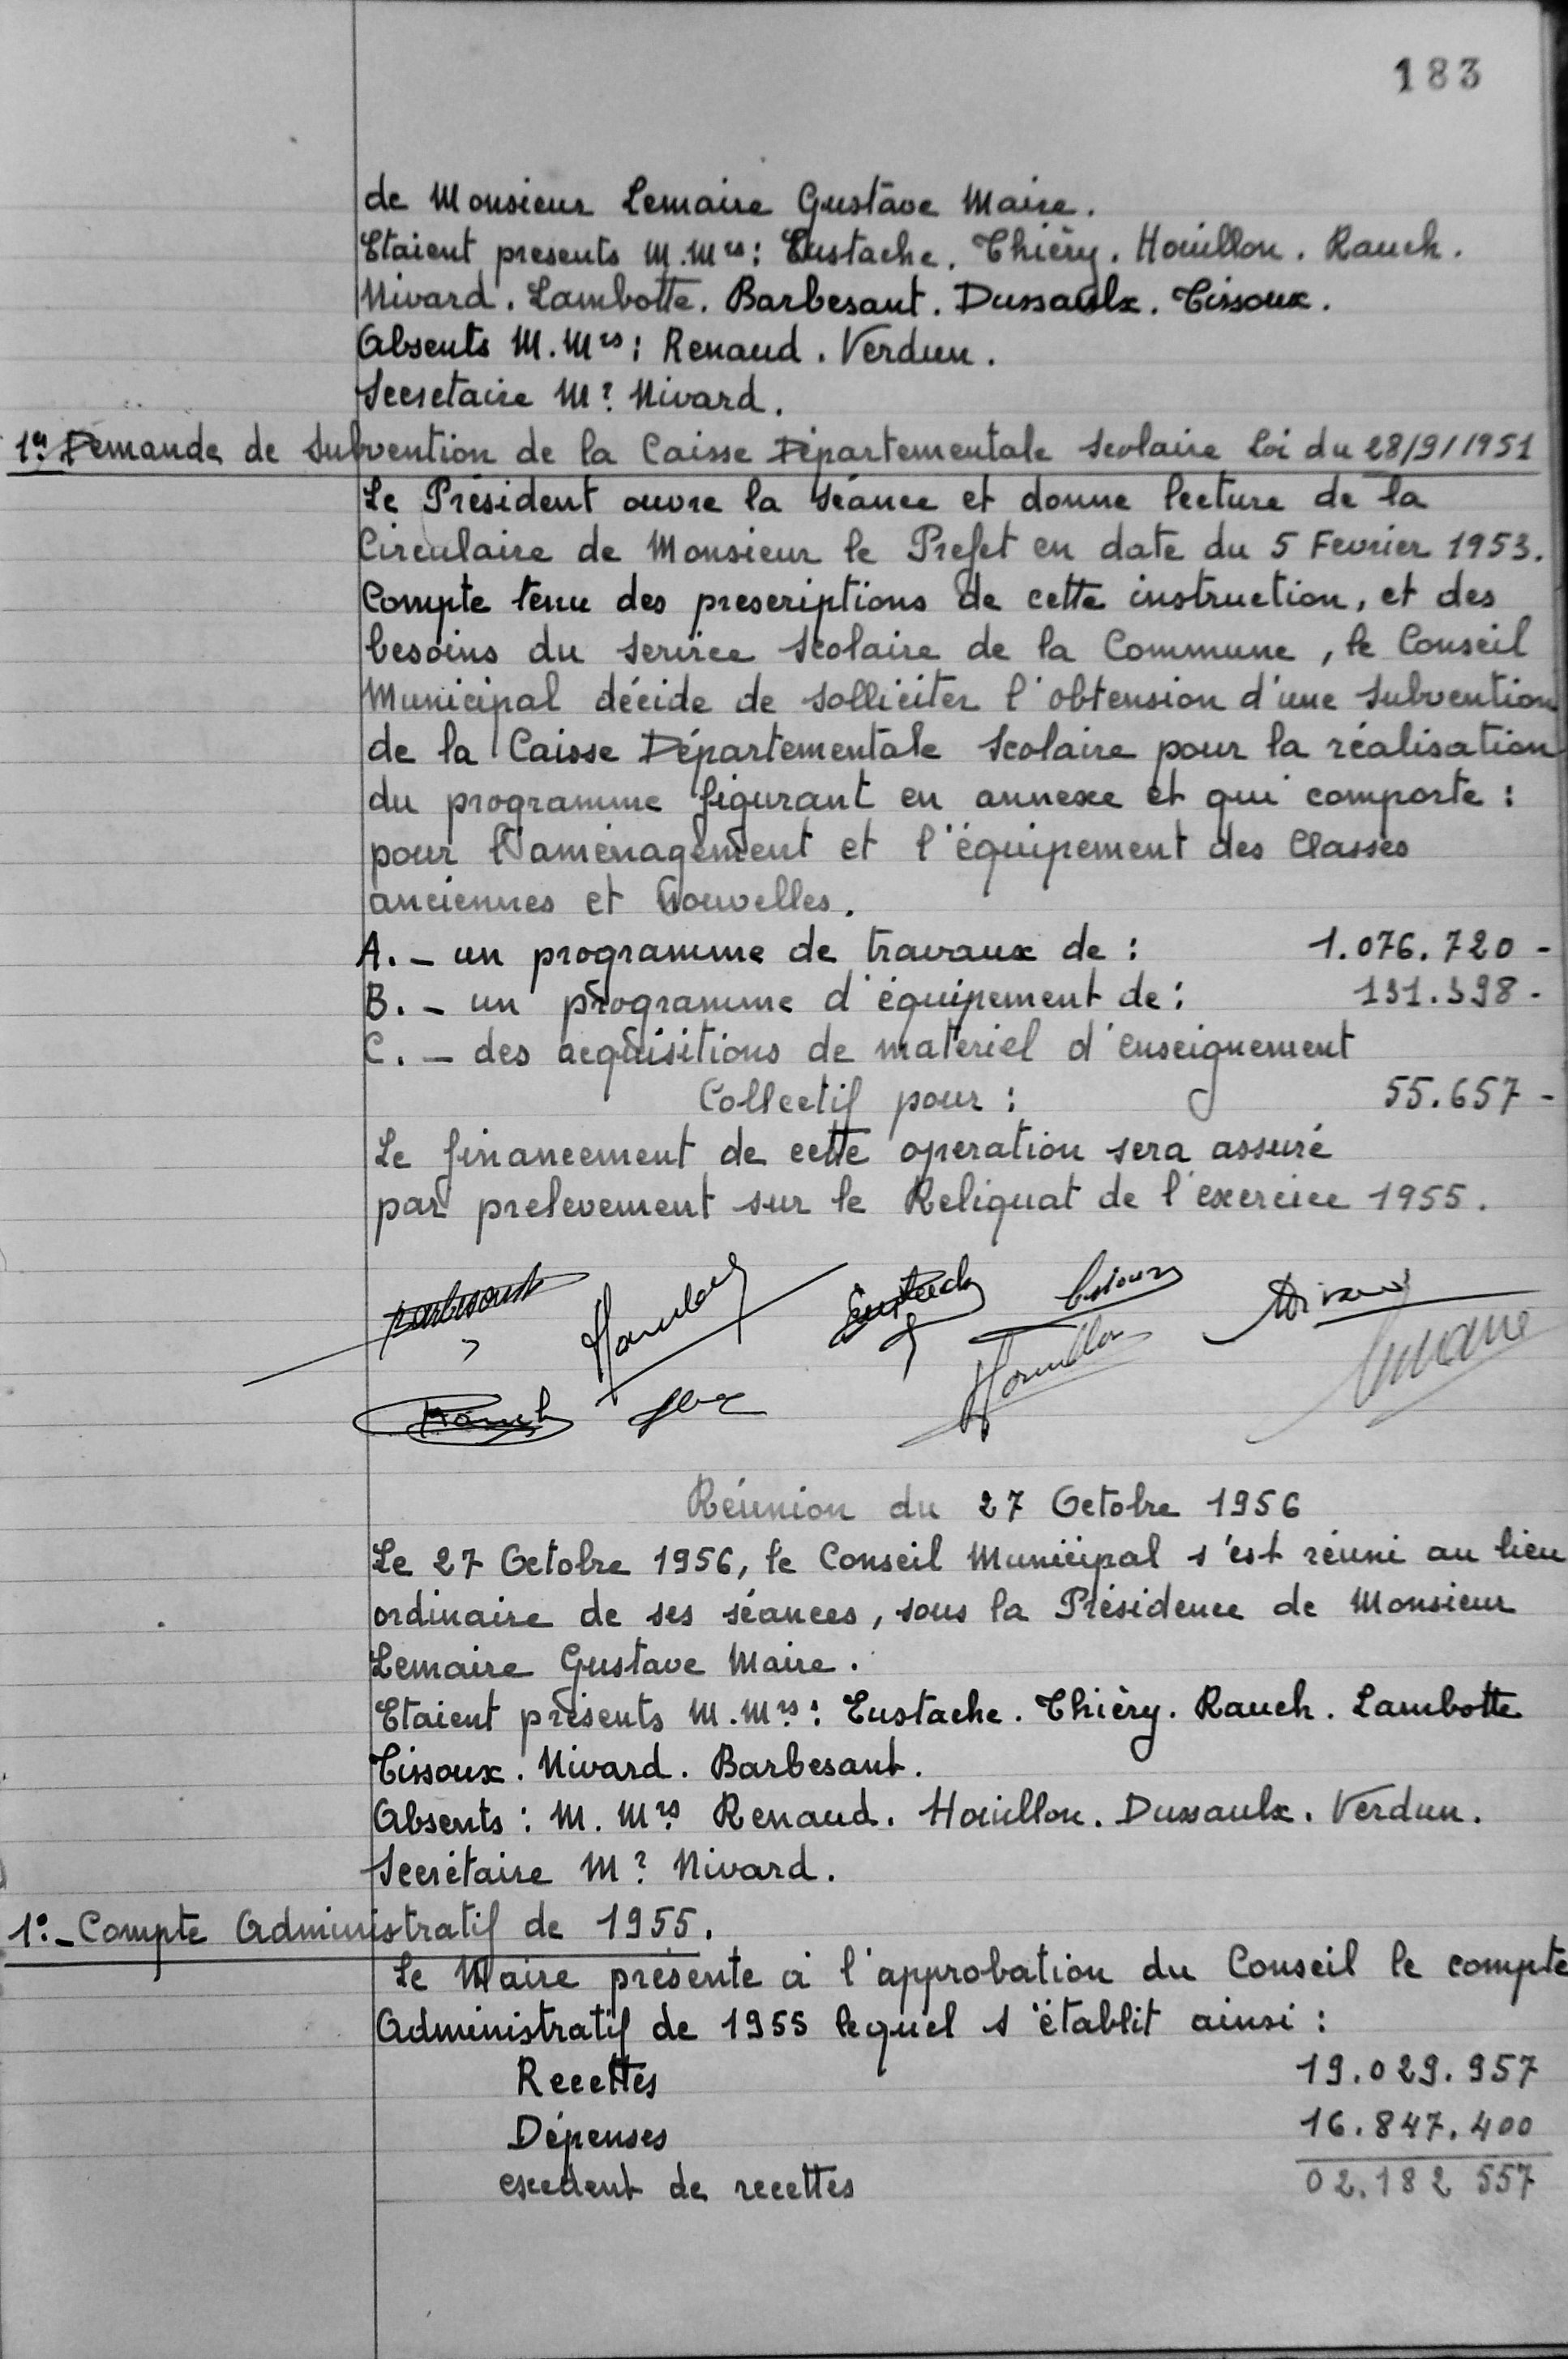 183
de Monsieur Lemaire Gustave Maire.
Etaient presents M.Mrs: Eustache. Thiéry. Houillon. Rauch.
Nivard. Lambotte. Barbesant. Dussaulx. Tissoux.
Absents M.Mrs: Renaud. Verdun.
Secretaire Mr Nivard.
1er Demande de Subvention de la Caisse Départementale Scolaire Loi du 28/9/1951
Le Président ouvre la séance et donne lecture de la
Circulaire de Monsieur le Prefet en date du 5 Fevrier 1953.
Compte tenu des prescriptions de cette instruction, et des
besoins du service scolaire de la Commune, le Conseil
Municipal décide de solliciter l'obtension d'une subvention
de la Caisse Départementale Scolaire pour la réalisation
du programme figurant en annexe et qui comporte :
pour l'aménagement et l'équipement des Classes
anciennes et Nouvelles.
A. - un programme de travaux de : 1.076.720 -
B. - un programme d'équipement de : 131.398 -
C. - des acquisitions de materiel d'enseignement
Collectif pour : 55.657 -
Le financement de cette operation sera assuré
par prelevement sur le Reliquat de l'exercice 1955.
Barbesant Eustache Tissoux Nivard
Rauch Houillon Lemaire
Réunion du 27 Octobre 1956
Le 27 Octobre 1956, le Conseil Municipal s'est réuni au lieu
ordinaire de ses séances, sous la Présidence de Monsieur
Lemaire Gustave Maire.
Etaient présents M.Mrs : Eustache. Thiéry. Rauch. Lambotte
Tissoux. Nivard. Barbesant.
Absents : M.Mrs Renaud. Houillon. Dussaulx. Verdun.
Secrétaire Mr Nivard.
1°- Compte Administratif de 1955.
Le Maire présente à l'approbation du Conseil le compte
Administratif de 1955 lequel s'établit ainsi :
Recettes 19.029.957
Dépenses 16.847.400
excedent de recettes 02.182 557